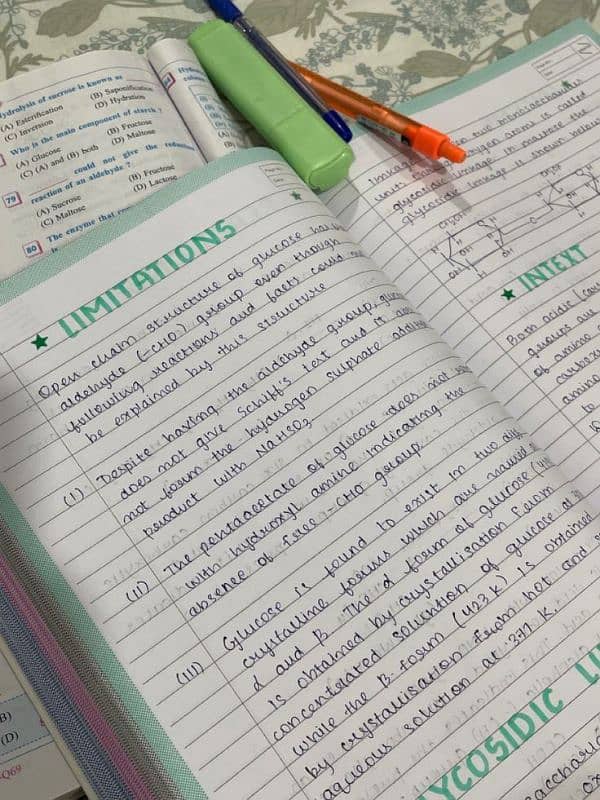 ydrolysis of sucrose is known as
(A) Esterification (B) Saponification
(C) Inversion (D) Hydration
Who is the main component of starch ?
(A) Glucose (B) Fructose
(C) (A) and (B) both (D) Maltose
79 could not give the
reaction of an aldehyde ?
(A) Sucrose (B) Fructose
(C) Maltose (D) Lactose
80 The enzyme that
LIMITATIONS
Open-chain structure of glucose
aldehyde (-CHO) group even though
following reactions and facts could
be explained by this structure
(I) Despite having the aldehyde group,
does not give Schiff's test and it
not form the hydrogen sulphate
product with NaHSO3
(II) The pentaacetate of glucose does not
with hydroxyl amine indicating the
absence of free -CHO group.
(III) Glucose is found to exist in two
crystalline forms which are
α and β. The α form of glucose
is obtained by crystallisation from
concentrated solution of glucose at
while the β-form (423 K) is obtained
by crystallisation from hot and
aqueous solution at 371 K.
YCOSIDIC
linkage two monosaccharide
units oxygen atoms is called
glycosidic linkage in maltose the
glycosidic linkage is shown below
INTEXT
Both acidic
groups are
of amino
amino
to
B)
(D)
Q69